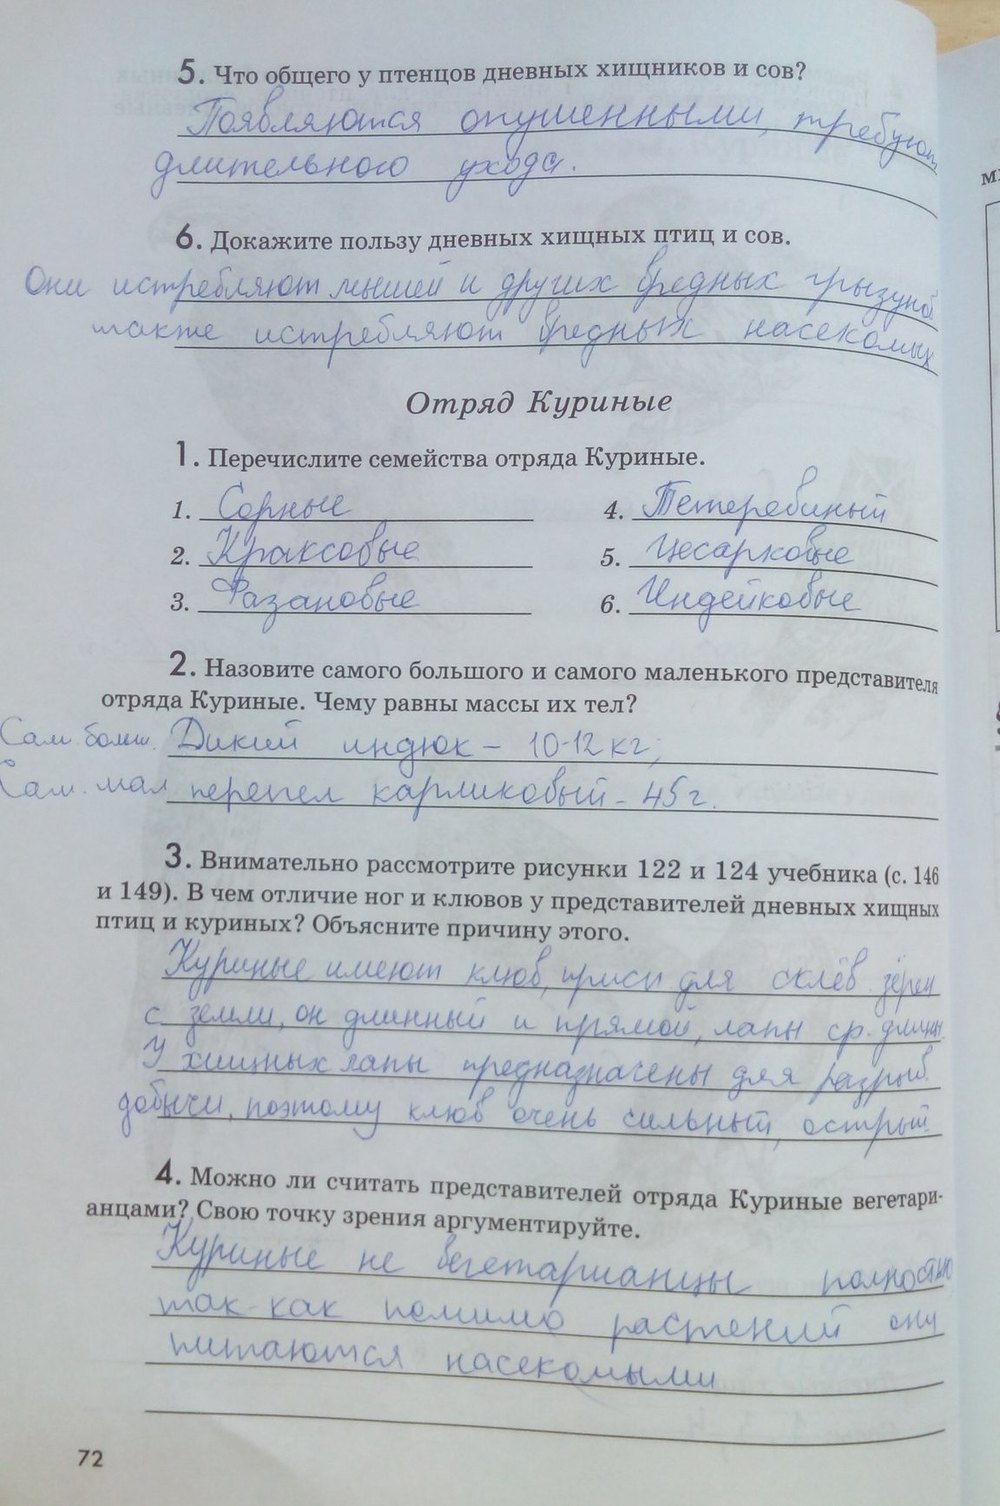 5. Что общего у птенцов дневных хищников и сов?
Появляются опушенными, требуют
длительного ухода.
6. Докажите пользу дневных хищных птиц и сов.
Они истребляют мышей и других вредных грызунов
также истребляют вредных насекомых
Отряд Куриные
1. Перечислите семейства отряда Куриные.
1. Сорные
4. Тетеревиный
2. Краксовые
5. Цесарковые
3. Фазановые
6. Индейковые
2. Назовите самого большого и самого маленького представителя
отряда Куриные. Чему равны массы их тел?
Сам. больш. Дикий индюк - 10-12 кг;
Сам. мал перепел карликовый - 45 г.
3. Внимательно рассмотрите рисунки 122 и 124 учебника (с. 146
и 149). В чем отличие ног и клювов у представителей дневных хищных
птиц и куриных? Объясните причину этого.
Куриные имеют клюв, присп для склёв. зёрен
с земли, он длинный и прямой, лапы ср. длины.
У хищных лапы предназначены для разрыв.
добычи, поэтому клюв очень сильный, острый
4. Можно ли считать представителей отряда Куриные вегетари-
анцами? Свою точку зрения аргументируйте.
Куриные не вегетарианцы полностью
так-как помимо растений они
питаются насекомыми
72